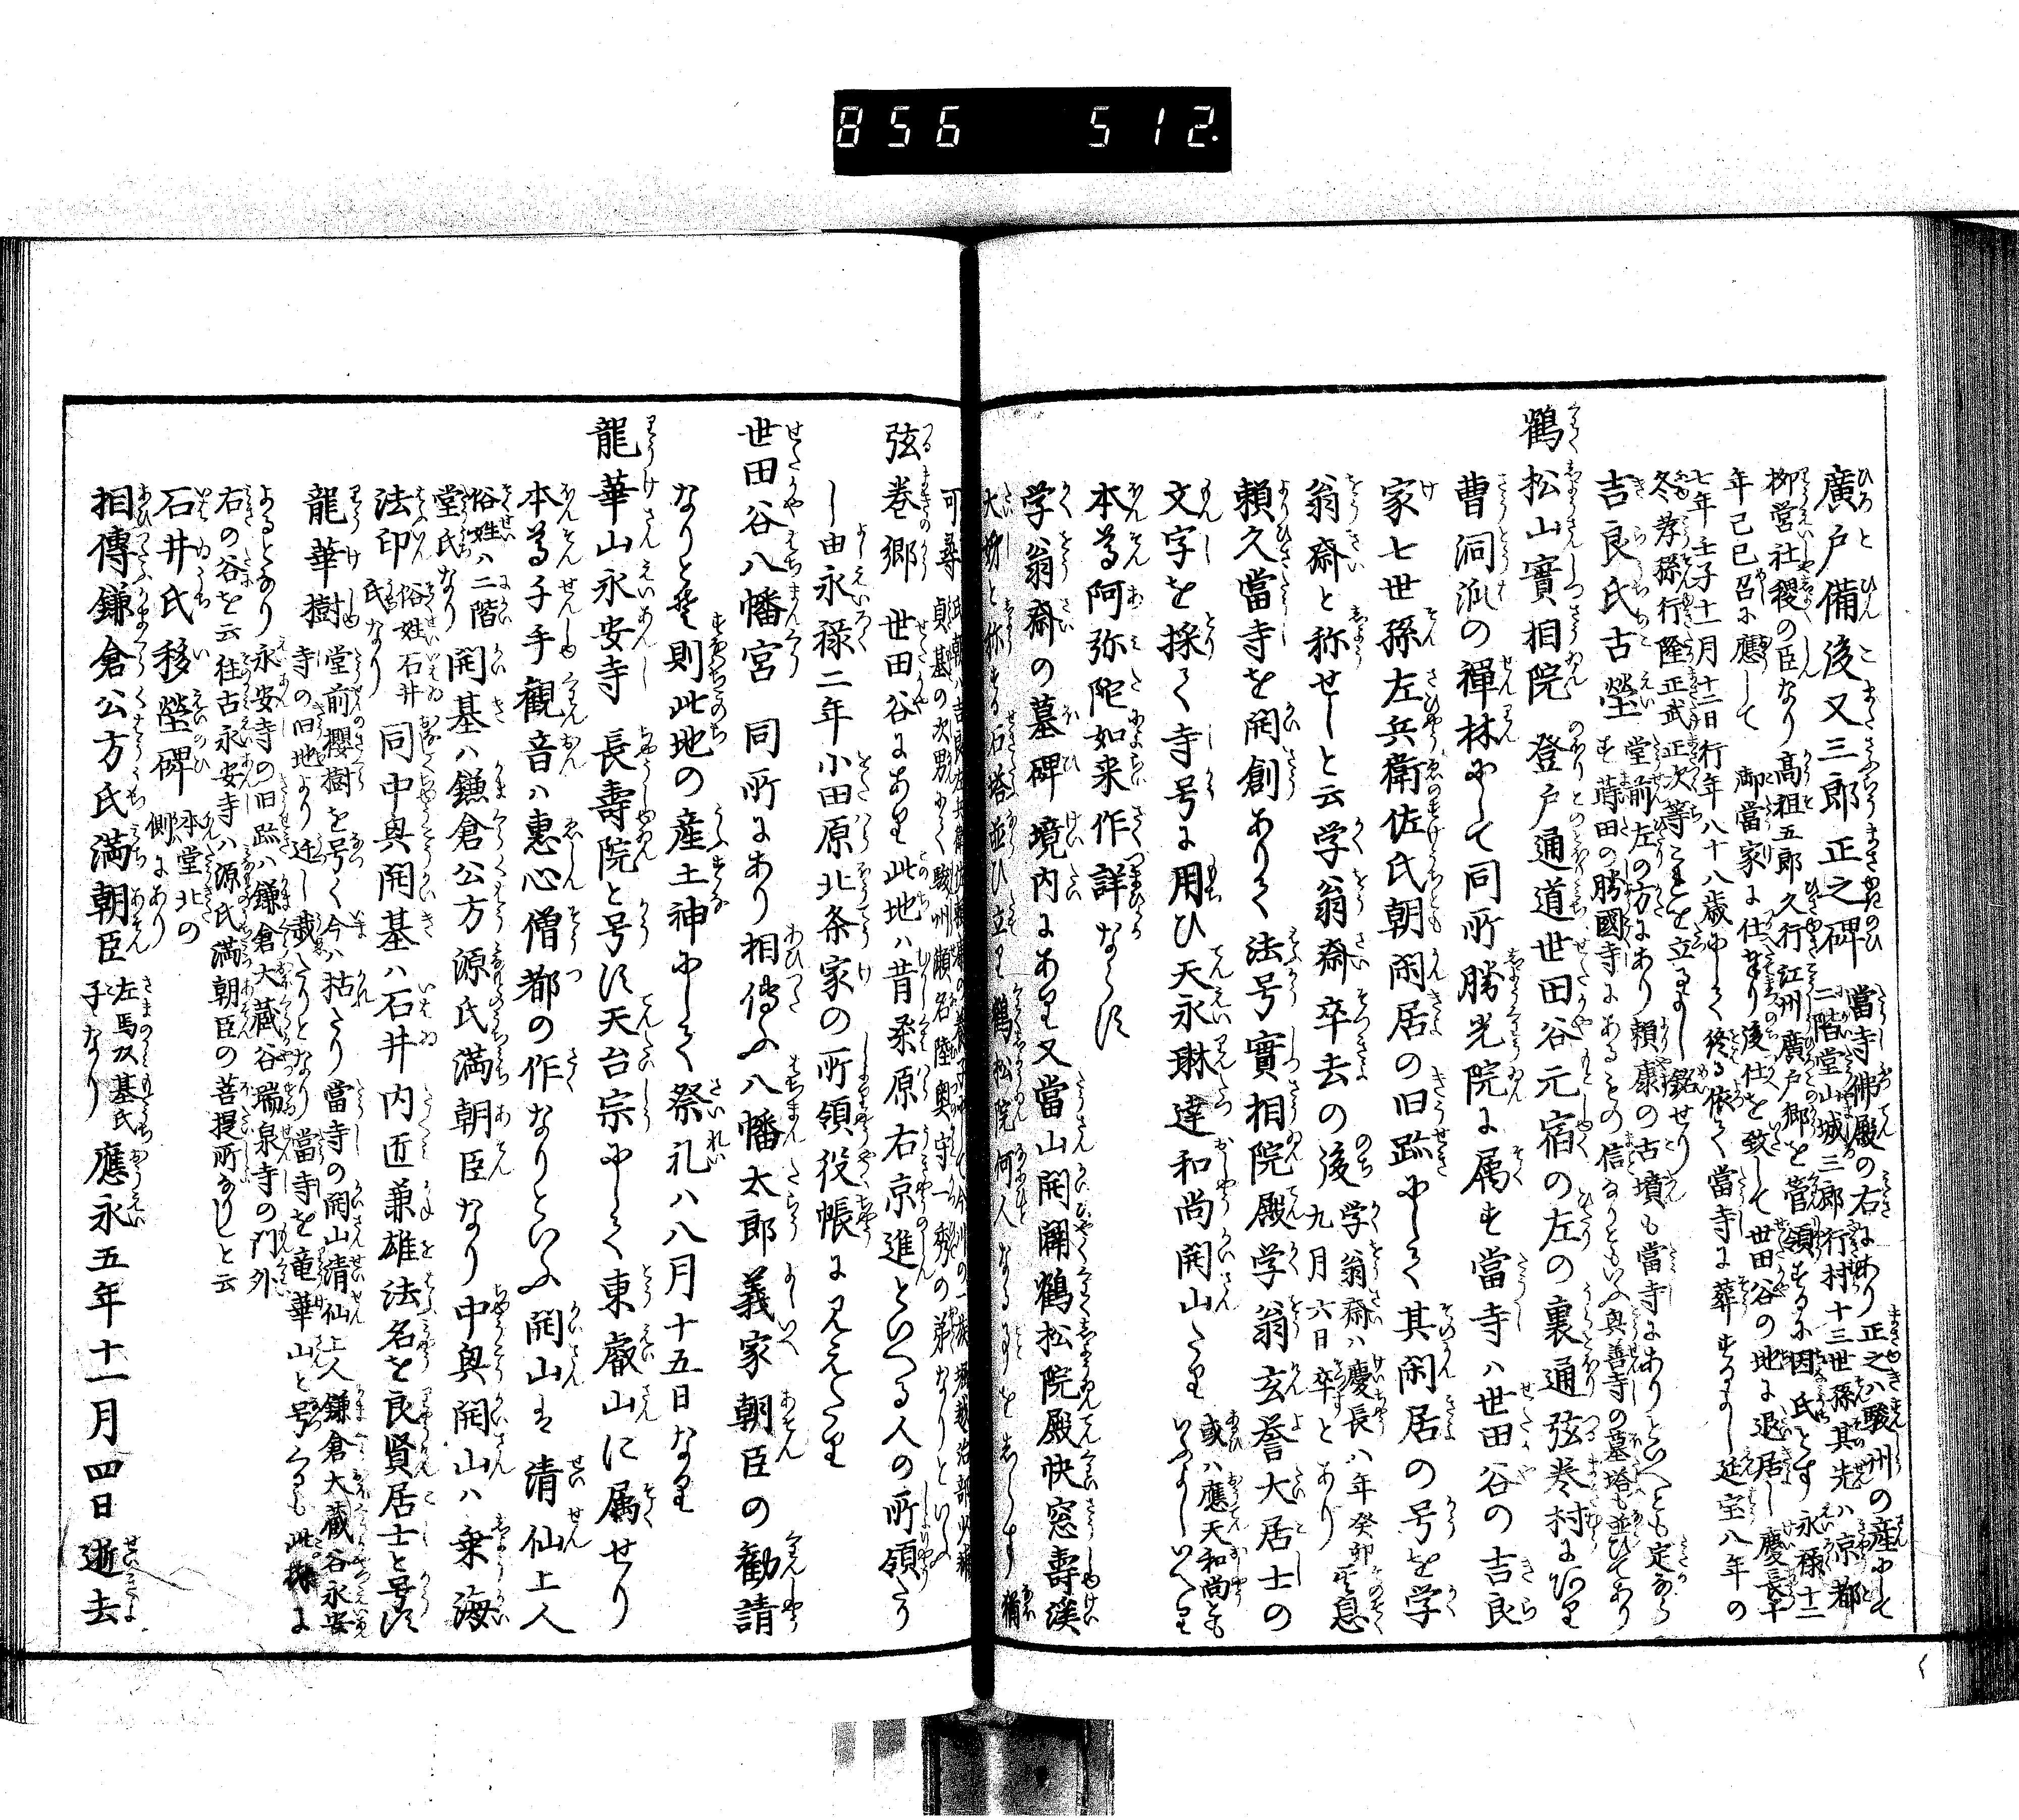 856 512.
廣戸備後又三郎正之碑 當寺佛殿の右にあり正之ハ駿州の産にして
二階堂山城三郎行村十三世孫其先ハ京都
柳営社稷の臣なり高祖五郎久行江州廣戸郷を管領するに因氏とす永禄十二
年己巳召に應して 御當家に仕奉り後仕を致して世田谷の地に退居し慶長十
七年壬子十一月十二日行年八十八歳にして終る依て當寺に葬するよし延宝八年の
冬孝孫行隆正武正次等これを立るよし銘せり
吉良氏古塋 堂前左の方にあり頼康の古墳も當寺にありといへとも定かなら
す蒔田の勝國寺にあるもの信なりともいふ與善寺の墓塔も並ひてあり
鶴松山實相院 登戸通道世田谷元宿の左の裏通弦巻村にあり
曹洞派の禅林にして同所勝光院に属す當寺ハ世田谷の吉良
家七世孫左兵衛佐氏朝閑居の旧趾にして其閑居の号を学
翁斎と称せしと云学翁斎卒去の後 学翁斎ハ慶長八年癸卯
九月六日卒とあり 其息
頼久當寺を開創ありて法号實相院殿学翁玄誉大居士の
文字を採て寺号に用ひ天永琳達和尚開山たり 或ハ應天和尚とも
いふよしいへり
本尊阿弥陀如来作詳ならす
学翁斎の墓碑境内にあり又當山開闢鶴松院殿快窓壽渓
大姉と称する石塔並ひ立り 鶴松院何人なる事をしらす猶
可尋
弦巻郷 世田谷にあり此地ハ昔桑原右京進といへる人の所領たり
し由永禄二年小田原北条家の所領役帳に見えたり
世田谷八幡宮 同所にあり相傳ふ八幡太郎義家朝臣の勧請
なりと云則此地の産土神にして祭礼ハ八月十五日なり
龍華山永安寺 長壽院と号す天台宗にして東叡山に属せり
本尊千手観音ハ惠心僧都の作なりといふ開山を清仙上人
俗姓ハ二階
堂氏なり 開基ハ鎌倉公方源氏満朝臣なり中興開山ハ乗海
法印 俗姓石井
氏なり 同中興開基ハ石井内匠兼雄法名を良賢居士と号す
龍華樹 堂前櫻樹を号く今ハ枯たり當寺の開山清仙上人鎌倉大蔵谷永安
寺の旧地より迁し栽たりとなり當寺を竜華山と号くるも此樹に
よるとなり永安寺の旧趾ハ鎌倉大蔵谷瑞泉寺の門外
右の谷を云往古永安寺ハ源氏満朝臣の菩提所なりしと云
石井氏移塋碑 本堂北の
側にあり
相傳鎌倉公方氏満朝臣 左馬頭基氏
子なり 應永五年十一月四日逝去